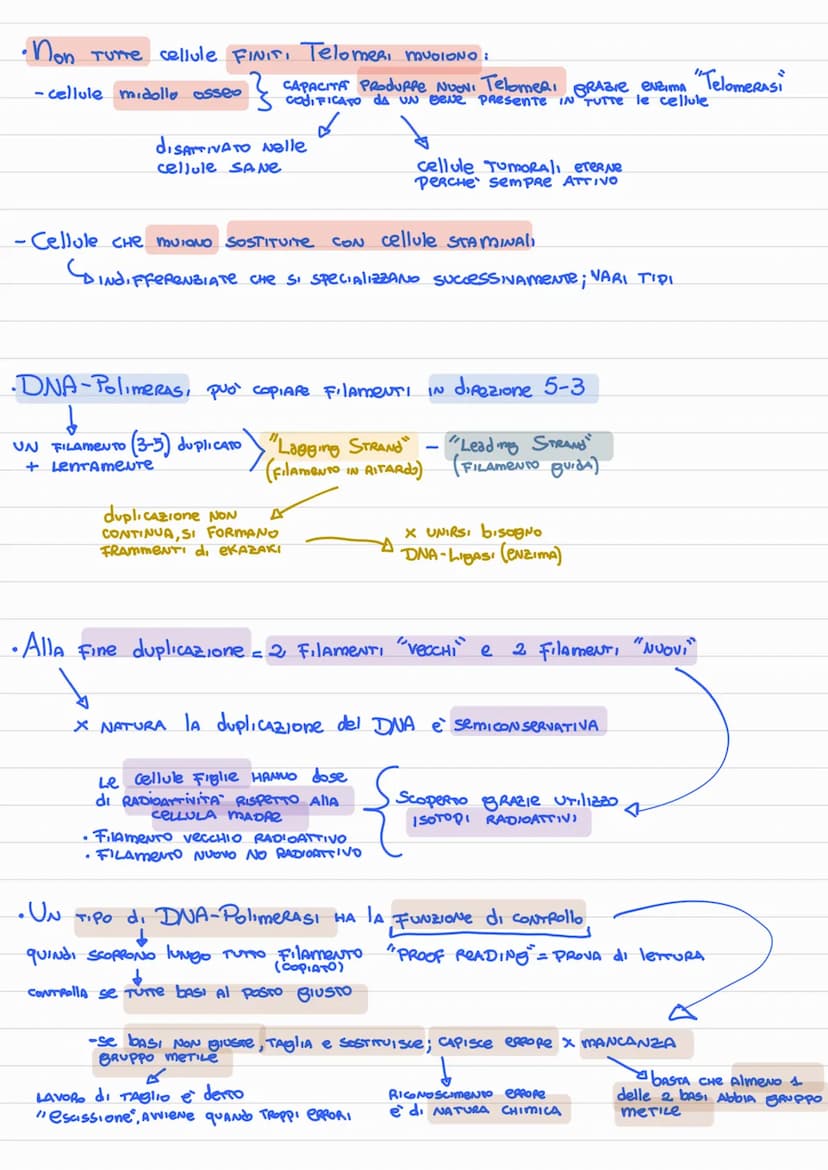 • Non TUTTE cellule FINITI Telomeri muoiono:
- cellule midollo osseo } CAPACITÀ PRODURRE NUOVI Telomeri GRAZIE ENZIMA "Telomerasi"
codificato da un gene presente in tutte le cellule
disattivato nelle
cellule SANE
cellule Tumorali eterne
perchè sempre attivo
- Cellule che muoiono sostituite con cellule staminali
indifferenziate che si specializzano successivamente; vari tipi
• DNA-Polimerasi può copiare filamenti in direzione 5-3
UN filamento (3-5) duplicato
+ lentamente
"Lagging STRAND" - "Leading STRAND"
(filamento in ritardo) (filamento guida)
duplicazione non
continua, si formano
frammenti di ekazaki
x unirsi bisogno
DNA-Ligasi (enzima)
• Alla fine duplicazione = 2 filamenti "vecchi" e 2 filamenti "nuovi"
x natura la duplicazione del DNA è semiconservativa
Le cellule figlie hanno dose
di radioattività rispetto alla
cellula madre
• Filamento vecchio radioattivo
• Filamento nuovo no radioattivo
Scoperto grazie utilizzo
isotopi radioattivi
• Un tipo di DNA-Polimerasi ha la funzione di controllo
quindi scorrono lungo tutto filamento
(copiato)
"PROOF READING" = prova di lettura
controlla se tutte basi al posto giusto
- se basi non giuste, taglia e sostituisce; capisce errore x mancanza
gruppo metile
lavoro di taglio è detto
"escissione", avviene quando troppi errori
riconoscimento errore
è di natura chimica
basta che almeno 1
delle 2 basi abbia gruppo
metile